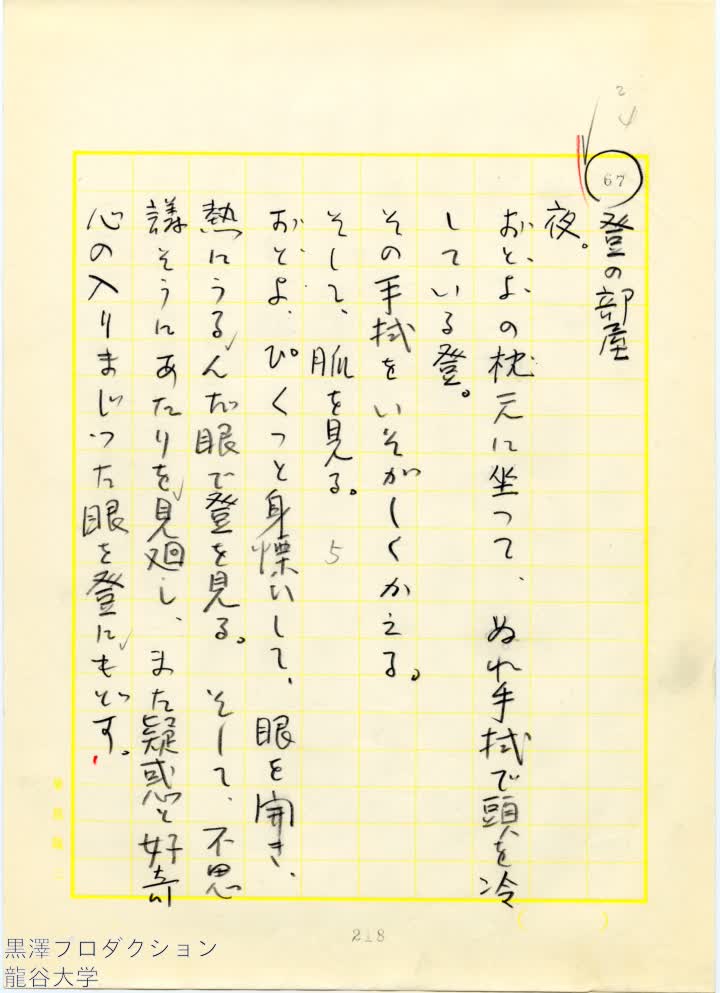 24
67
登の部屋
夜。
おとよの枕元に坐って、ぬれ手拭で頭を冷
している登。
その手拭をいそがしくかえる。
そして、脈を見る。 5
おとよ、ぴくっと身慄いして、眼を開き、
熱にうるんだ眼で登を見る。そして、不思
議そうにあたりを見廻し、また疑惑と好奇
心の入りまじった眼を登にもどす。
218
黒澤プロダクション
龍谷大学